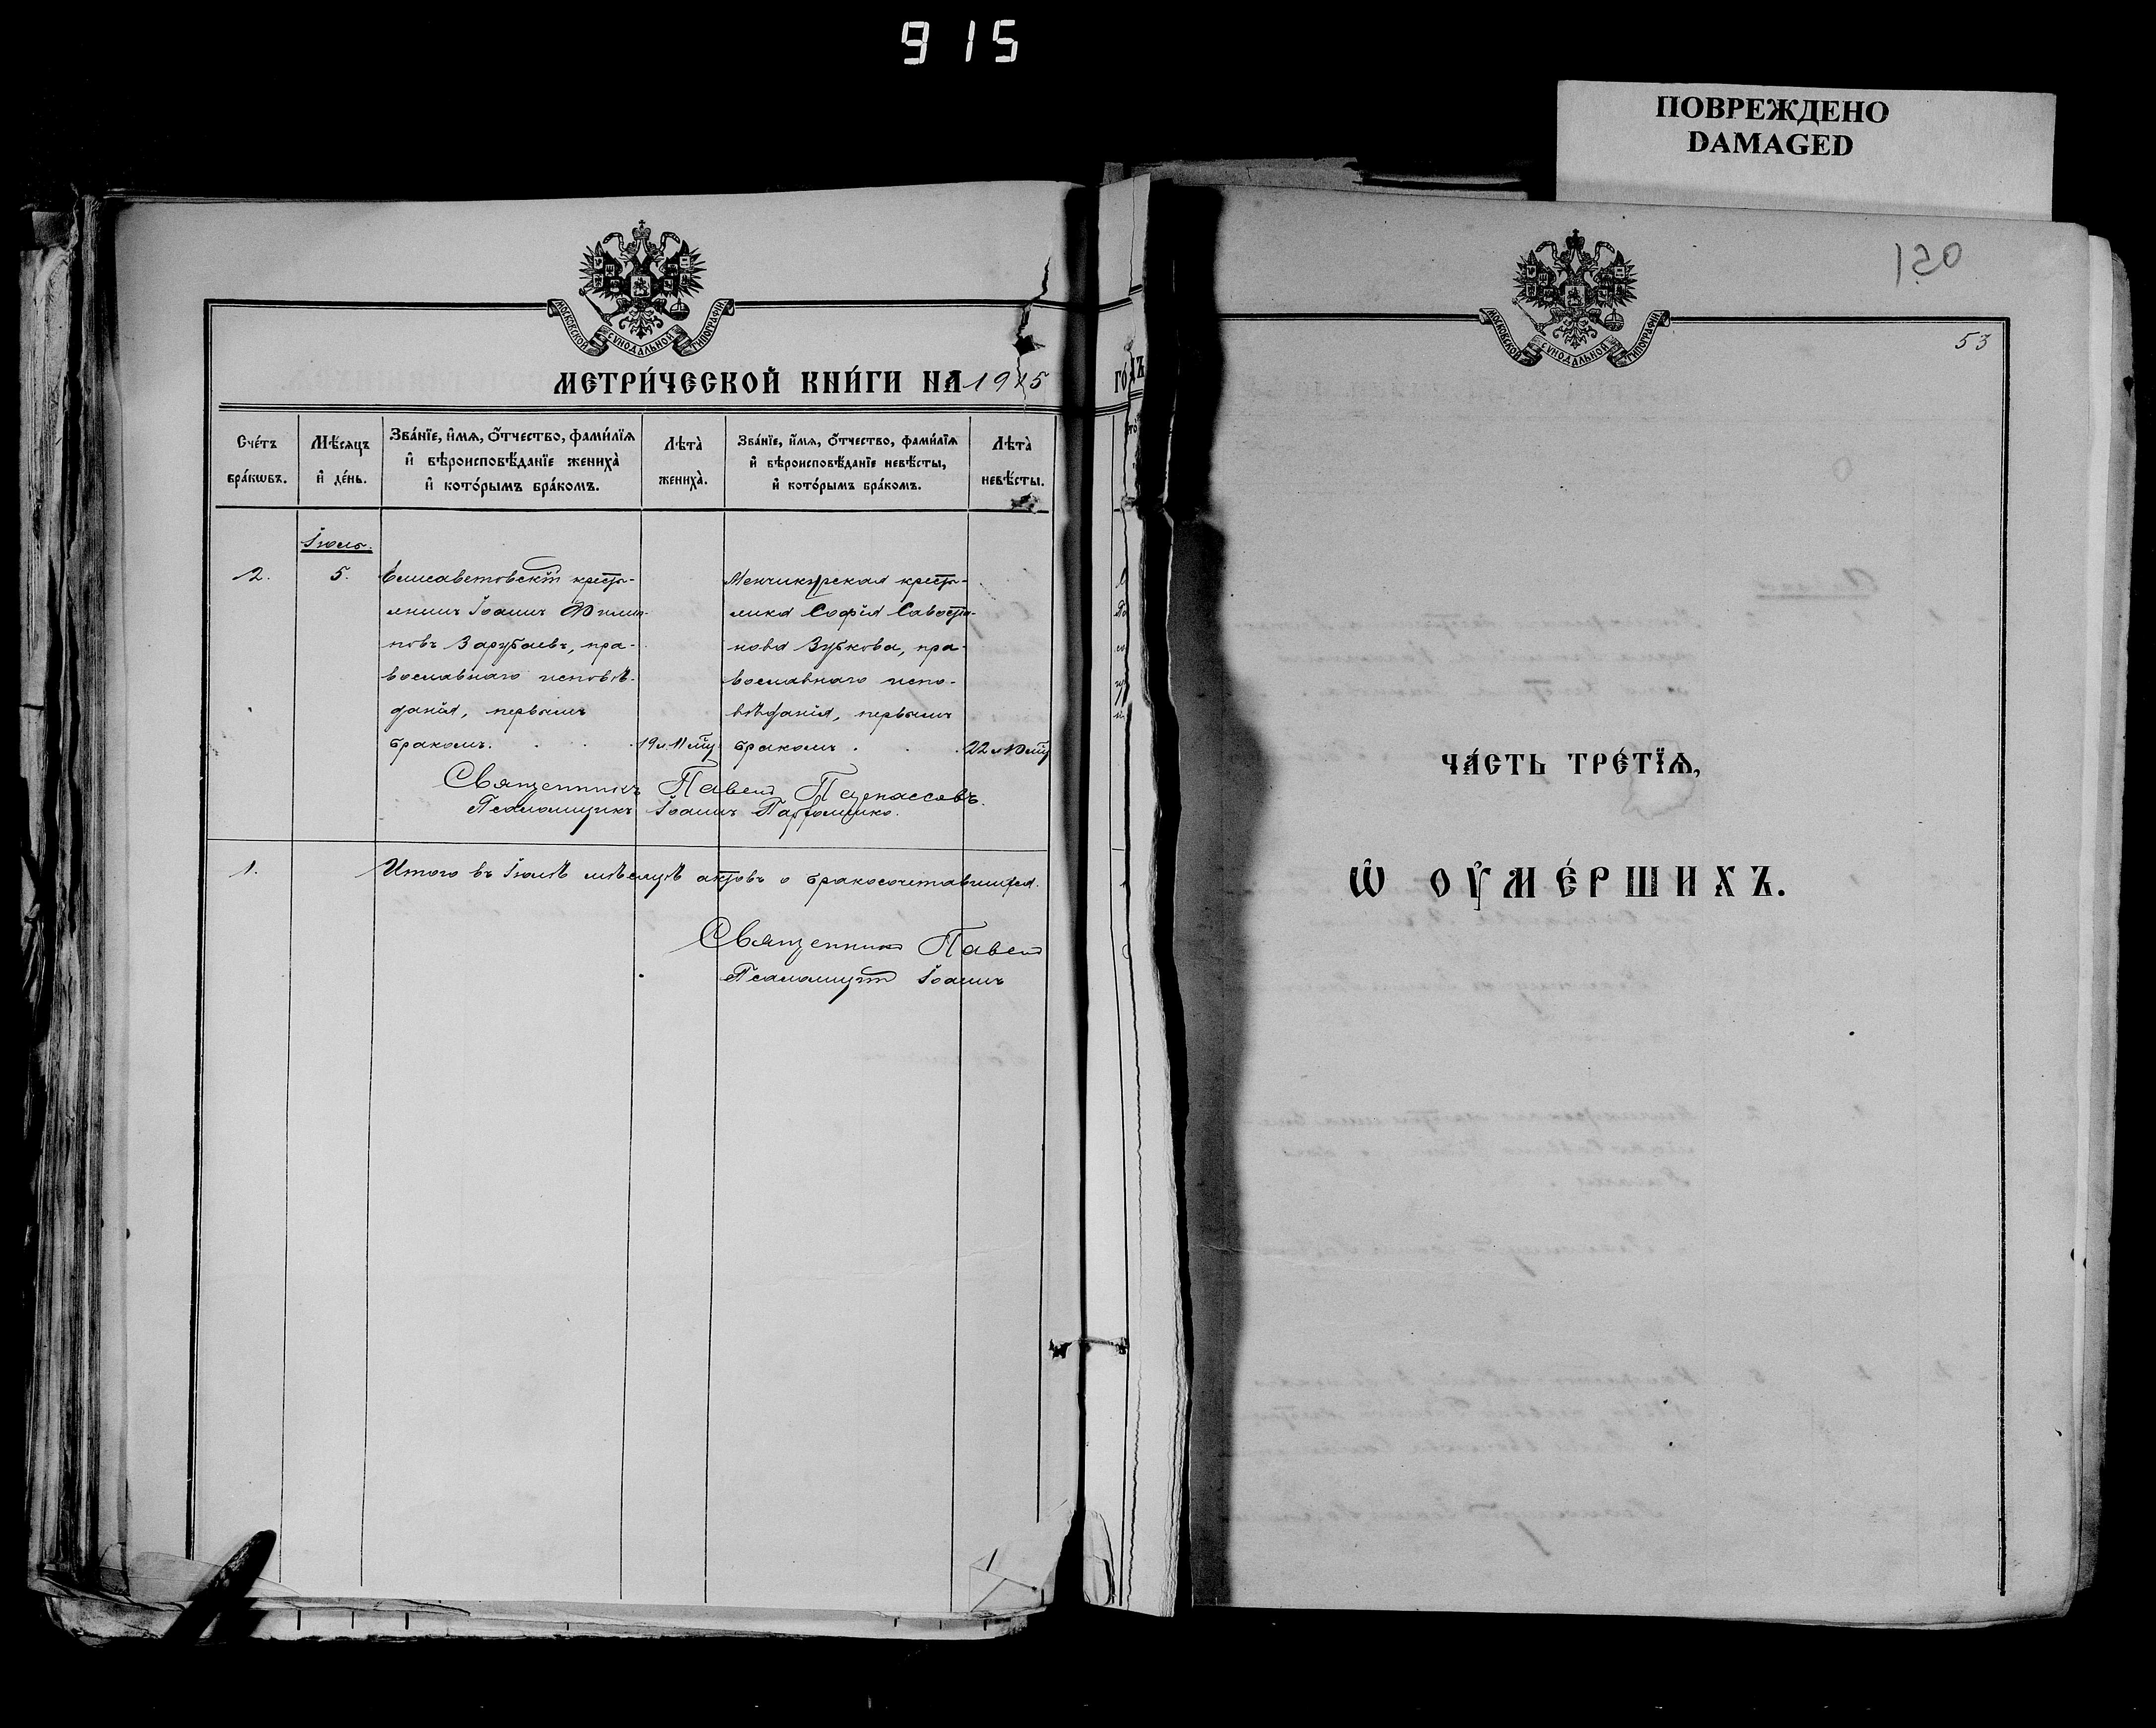 915
ПОВРЕЖДЕНО
DAMAGED
МОСКОВСКОЙ СѴНОДАЛЬНОЙ ТИПОГРАФІИ
МЕТРИ́ЧЕСКОЙ КНИ́ГИ НА 1915 ГОДЪ
Сче́тъ бра́кѡвъ.
Мѣ́сяцъ и҆ де́нь.
Зва́нїе, и҆́мѧ, ѻ҆́тчество, фами́лїѧ и҆ вѣроисповѣ́данїе жениха̀ и҆ кото́рымъ бра́комъ.
Лѣта̀ жениха̀.
Зва́нїе, и҆́мѧ, ѻ҆́тчество, фами́лїѧ и҆ вѣроисповѣ́данїе невѣ́сты, и҆ кото́рымъ бра́комъ.
Лѣта̀ невѣ́сты.
Іюль.
2.
5.
Елисаветовскій кресть-
янинъ Іоаннъ Филип-
повъ Зарубаевъ, пра-
вославнаго исповѣ-
данія, первымъ
бракомъ.
19 л.
Менчикурская кресть-
янка Софія Савостья-
нова Зубкова, пра-
вославнаго испо-
вѣданія, первымъ
бракомъ.
22
Священникъ Павелъ
Псаломщикъ Іоаннъ
1.
Итого въ Іюлѣ мѣсяцѣ актовъ о бракосочетавшихся.
Священникъ Павелъ
Псаломщикъ Іоаннъ
МОСКОВСКОЙ СѴНОДАЛЬНОЙ ТИПОГРАФІИ
150
53
ЧА́СТЬ ТРЕ́ТЇѦ,
Ѡ҆ ОУ҆МЕ́РШИХЪ.